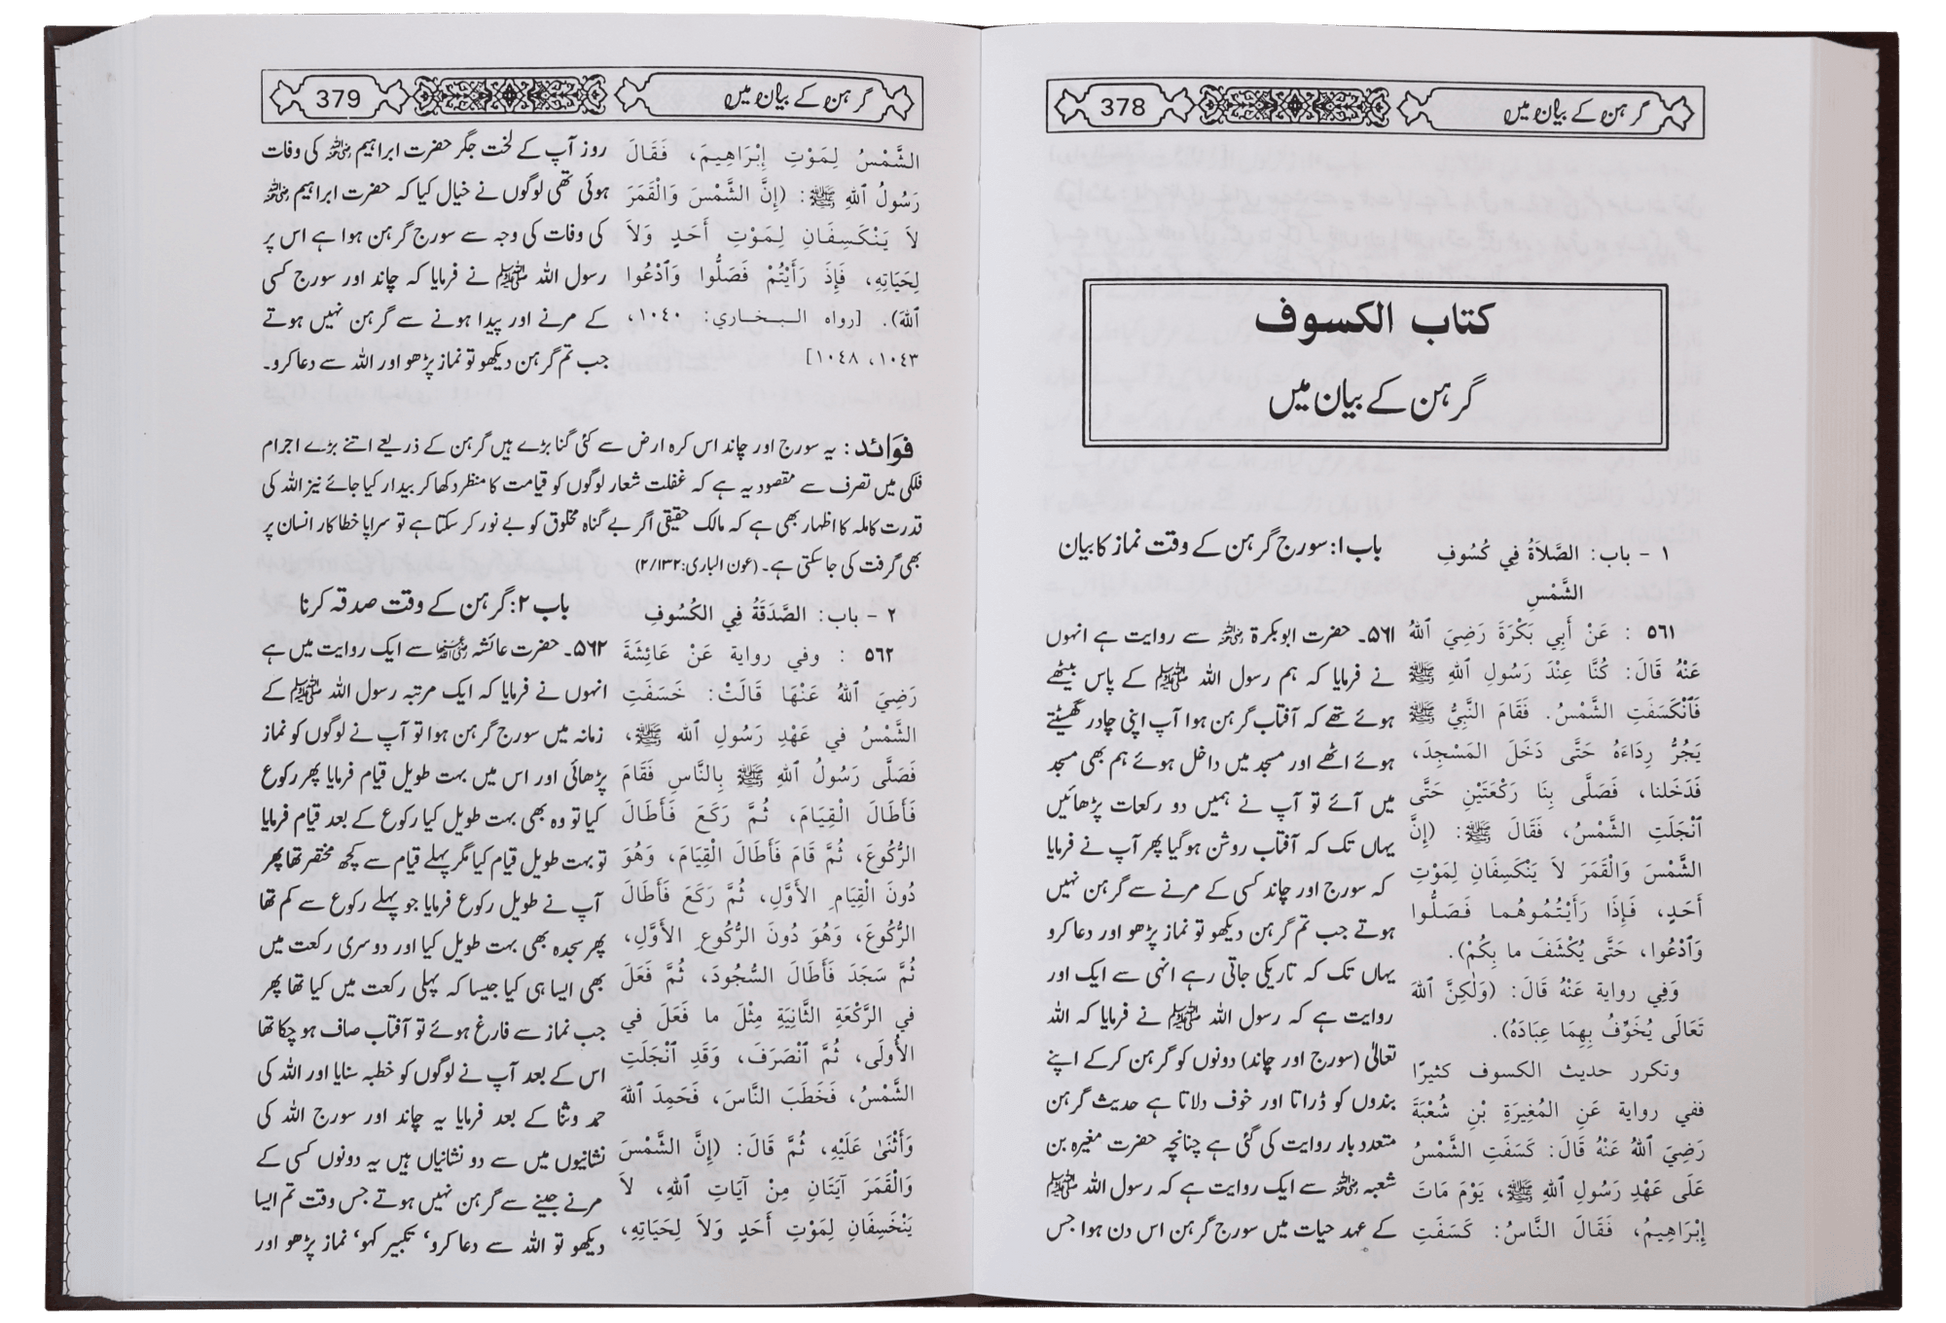 گرہن کے بیان میں
378
كتاب الكسوف
گرہن کے بیان میں
١ - باب: الصَّلاَةُ فِي كُسُوفِ
الشَّمْسِ
٥٦١ : عَنْ أَبِي بَكْرَةَ رَضِيَ ٱللهُ
عَنْهُ قَالَ: كُنَّا عِنْدَ رَسُولِ ٱللهِ ﷺ
فَٱنْكَسَفَتِ الشَّمْسُ. فَقَامَ النَّبِيُّ ﷺ
يَجُرُّ رِدَاءَهُ حَتَّى دَخَلَ المَسْجِدَ،
فَدَخَلنا، فَصَلَّى بِنَا رَكْعَتَيْنِ حَتَّى
ٱنْجَلَتِ الشَّمْسُ، فَقَالَ ﷺ: (إِنَّ
الشَّمْسَ وَالْقَمَرَ لاَ يَنْكَسِفَانِ لِمَوْتِ
أَحَدٍ، فَإِذَا رَأَيْتُمُوهُما فَصَلُّوا
وَٱدْعُوا، حَتَّى يُكْشَفَ ما بِكُمْ).
وَفِي رواية عَنْهُ قَالَ: (وَلٰكِنَّ ٱللهَ
تَعَالَى يُخَوِّفُ بِهِمَا عِبَادَهُ).
وتكرر حديث الكسوف كثيرًا
ففي رواية عَنِ المُغِيرَةِ بْنِ شُعْبَةَ
رَضِيَ ٱللهُ عَنْهُ قَالَ: كَسَفَتِ الشَّمْسُ
عَلَى عَهْدِ رَسُولِ ٱللهِ ﷺ، يَوْمَ مَاتَ
إِبْرَاهِيمُ، فَقَالَ النَّاسُ: كَسَفَتِ
باب ۱: سورج گرہن کے وقت نماز کا بیان
۵۶۱۔ حضرت ابوبکرۃ رضی اللہ عنہ سے روایت ہے انہوں
نے فرمایا کہ ہم رسول اللہ ﷺ کے پاس بیٹھے
ہوئے تھے کہ آفتاب گرہن ہوا آپ اپنی چادر گھسیٹتے
ہوئے اٹھے اور مسجد میں داخل ہوئے ہم بھی مسجد
میں آئے تو آپ نے ہمیں دو رکعات پڑھائیں
یہاں تک کہ آفتاب روشن ہوگیا پھر آپ نے فرمایا
کہ سورج اور چاند کسی کے مرنے سے گرہن نہیں
ہوتے جب تم گرہن دیکھو تو نماز پڑھو اور دعا کرو
یہاں تک کہ تاریکی جاتی رہے انہی سے ایک اور
روایت ہے کہ رسول اللہ ﷺ نے فرمایا کہ اللہ
تعالیٰ (سورج اور چاند) دونوں کو گرہن کرکے اپنے
بندوں کو ڈراتا اور خوف دلاتا ہے حدیث گرہن
متعدد بار روایت کی گئی ہے چنانچہ حضرت مغیرہ بن
شعبہ رضی اللہ عنہ سے ایک روایت ہے کہ رسول اللہ ﷺ
کے عہد حیات میں سورج گرہن اس دن ہوا جس
گرہن کے بیان میں
379
الشَّمْسُ لِمَوْتِ إِبْرَاهِيمَ، فَقَالَ
رَسُولُ ٱللهِ ﷺ: (إِنَّ الشَّمْسَ وَالْقَمَرَ
لاَ يَنْكَسِفَانِ لِمَوْتِ أَحَدٍ وَلاَ
لِحَيَاتِهِ، فَإِذَ رَأَيْتُمْ فَصَلُّوا وَٱدْعُوا
ٱللهَ). [رواه البخاري: ١٠٤٠،
١٠٤٣، ١٠٤٨]
روز آپ کے لخت جگر حضرت ابراہیم رضی اللہ عنہ کی وفات
ہوئی تھی لوگوں نے خیال کیا کہ حضرت ابراہیم رضی اللہ عنہ
کی وفات کی وجہ سے سورج گرہن ہوا ہے اس پر
رسول اللہ ﷺ نے فرمایا کہ چاند اور سورج کسی
کے مرنے اور پیدا ہونے سے گرہن نہیں ہوتے
جب تم گرہن دیکھو تو نماز پڑھو اور اللہ سے دعا کرو۔
فوائد: یہ سورج اور چاند اس کرہ ارض سے کئی گنا بڑے ہیں گرہن کے ذریعے اتنے بڑے اجرام
فلکی میں تصرف سے مقصود یہ ہے کہ غفلت شعار لوگوں کو قیامت کا منظر دکھا کر بیدار کیا جائے نیز اللہ کی
قدرت کاملہ کا اظہار بھی ہے کہ مالک حقیقی اگر بے گناہ مخلوق کو بے نور کر سکتا ہے تو سراپا خطا کار انسان پر
بھی گرفت کی جا سکتی ہے۔ (عون الباری:۲/۱۳۲)
٢ - باب: الصَّدَقَةُ فِي الكُسُوفِ
٥٦٢ : وفي رواية عَنْ عَائِشَةَ
رَضِيَ ٱللهُ عَنْهَا قَالَتْ: خَسَفَتِ
الشَّمْسُ في عَهْدِ رَسُولِ ٱللهِ ﷺ،
فَصَلَّى رَسُولُ ٱللهِ ﷺ بِالنَّاسِ فَقَامَ
فَأَطَالَ الْقِيَامَ، ثُمَّ رَكَعَ فَأَطَالَ
الرُّكُوعَ، ثُمَّ قَامَ فَأَطَالَ الْقِيَامَ، وَهُوَ
دُونَ الْقِيَامِ الأَوَّلِ، ثُمَّ رَكَعَ فَأَطَالَ
الرُّكُوعَ، وَهُوَ دُونَ الرُّكُوعِ الأَوَّلِ،
ثُمَّ سَجَدَ فَأَطَالَ السُّجُودَ، ثُمَّ فَعَلَ
في الرَّكْعَةِ الثَّانِيَةِ مِثْلَ ما فَعَلَ في
الأُولَى، ثُمَّ ٱنْصَرَفَ، وَقَدِ ٱنْجَلَتِ
الشَّمْسُ، فَخَطَبَ النَّاسَ، فَحَمِدَ ٱللهَ
وَأَثْنَىٰ عَلَيْهِ، ثُمَّ قَالَ: (إِنَّ الشَّمْسَ
وَالْقَمَرَ آيَتَانِ مِنْ آيَاتِ ٱللهِ، لاَ
يَنْخَسِفَانِ لِمَوْتِ أَحَدٍ وَلاَ لِحَيَاتِهِ،
باب ۲: گرہن کے وقت صدقہ کرنا
۵۶۲۔ حضرت عائشہ رضی اللہ عنہا سے ایک روایت میں ہے
انہوں نے فرمایا کہ ایک مرتبہ رسول اللہ ﷺ کے
زمانہ میں سورج گرہن ہوا تو آپ نے لوگوں کو نماز
پڑھائی اور اس میں بہت طویل قیام فرمایا پھر رکوع
کیا تو وہ بھی بہت طویل کیا رکوع کے بعد قیام فرمایا
تو بہت طویل قیام کیا مگر پہلے قیام سے کچھ مختصر تھا پھر
آپ نے طویل رکوع فرمایا جو پہلے رکوع سے کم تھا
پھر سجدہ بھی بہت طویل کیا اور دوسری رکعت میں
بھی ایسا ہی کیا جیسا کہ پہلی رکعت میں کیا تھا پھر
جب نماز سے فارغ ہوئے تو آفتاب صاف ہو چکا تھا
اس کے بعد آپ نے لوگوں کو خطبہ سنایا اور اللہ کی
حمد وثنا کے بعد فرمایا یہ چاند اور سورج اللہ کی
نشانیوں میں سے دو نشانیاں ہیں یہ دونوں کسی کے
مرنے جینے سے گرہن نہیں ہوتے جس وقت تم ایسا
دیکھو تو اللہ سے دعا کرو' تکبیر کہو' نماز پڑھو اور